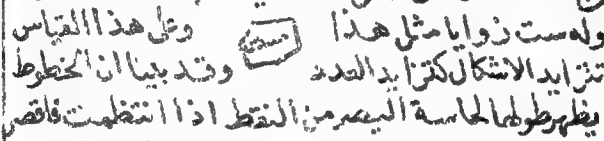 وله ست زوايا مثل هذا وعلى هذا القياس
تتزايد الاشكال كتزايد العدد وقد بينا ان الخطوط
يظهر طولها لحاسة البصر من النقط اذا انتظمت فاقصر